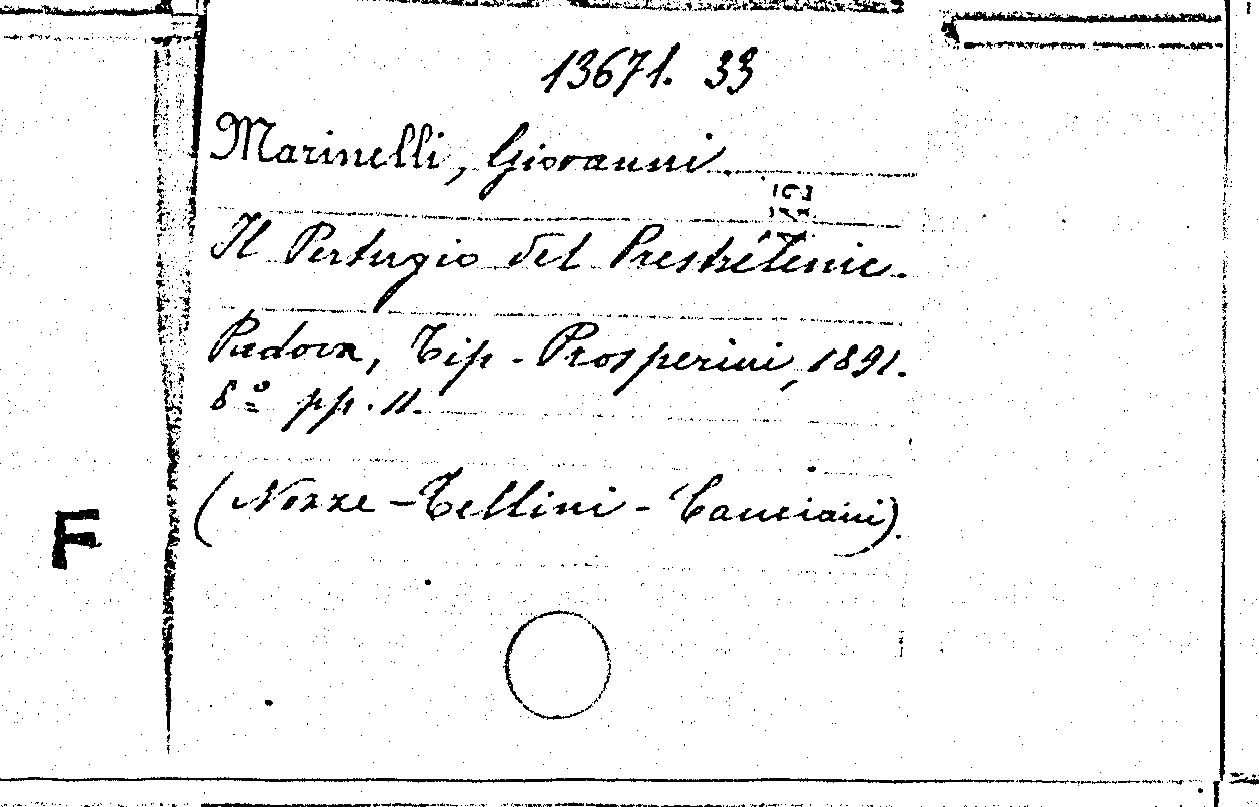 13671. 33
Marinelli, Giovanni.
Il Pertugio del Prestrelenic.
Padova, Tip. Prosperini, 1891.
8º pp. 11.
(Nozze - Tellini - Canciani).
F